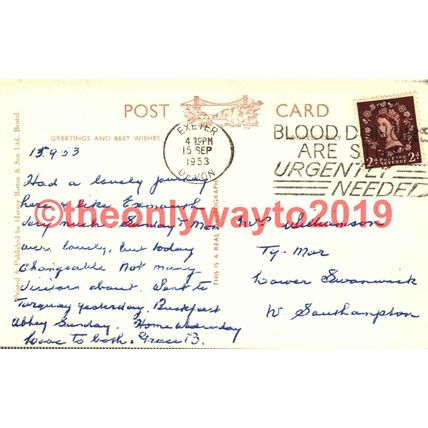 POST CARD
GREETINGS AND BEST WISHES
EXETER
4 15PM
15 SEP
1953
DEVON
BLOOD D
ARE S
URGENTLY
NEEDED
2d POSTAGE REVENUE 2d
Printed & Published by Harvey Barton & Son Ltd., Bristol.
THIS IS A REAL PHOTOGRAPH
15.9.53
Had a lovely journey
here & like Exmouth
very much Sunday & Mon
were lovely, but today
Changeable Not many
visitors about. Went to
Torquay yesterday. Buckfast
Abbey Sunday. Home Wednesday
Love to both. Grace B.
Mrs Williamson
Ty-Mor
Lower Swanwick
Nr Southampton
©theonlywayto2019